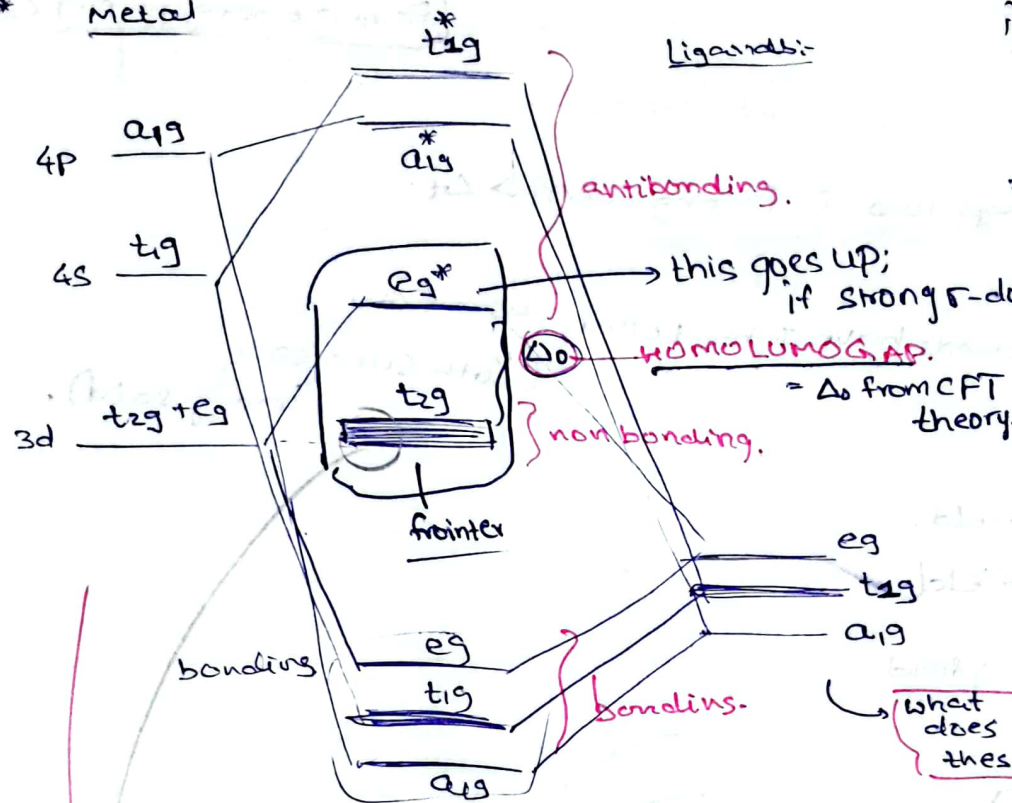 *
Metal
t1g*
Ligands:-
4p a1g
a1g*
antibonding.
4s t1g
eg*
this goes up;
if strong σ-do
Δ0
HOMO LUMO GAP.
= Δ0 from CFT
theory.
3d t2g + eg
t2g
non bonding.
frointer
eg
t1g
a1g
bonding
eg
t1g
bonding.
a1g
what
does
thes